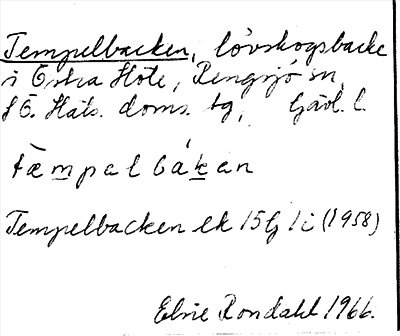 Tempelbacken, lövskogsbacke
i Östra Höle, Rengsjö sn,
f Ö. Häls. doms. tg, Gävl. l.
tæmpelbákan
Tempelbacken ek 15G 1i (1958)
Elvie Rondahl 1966.